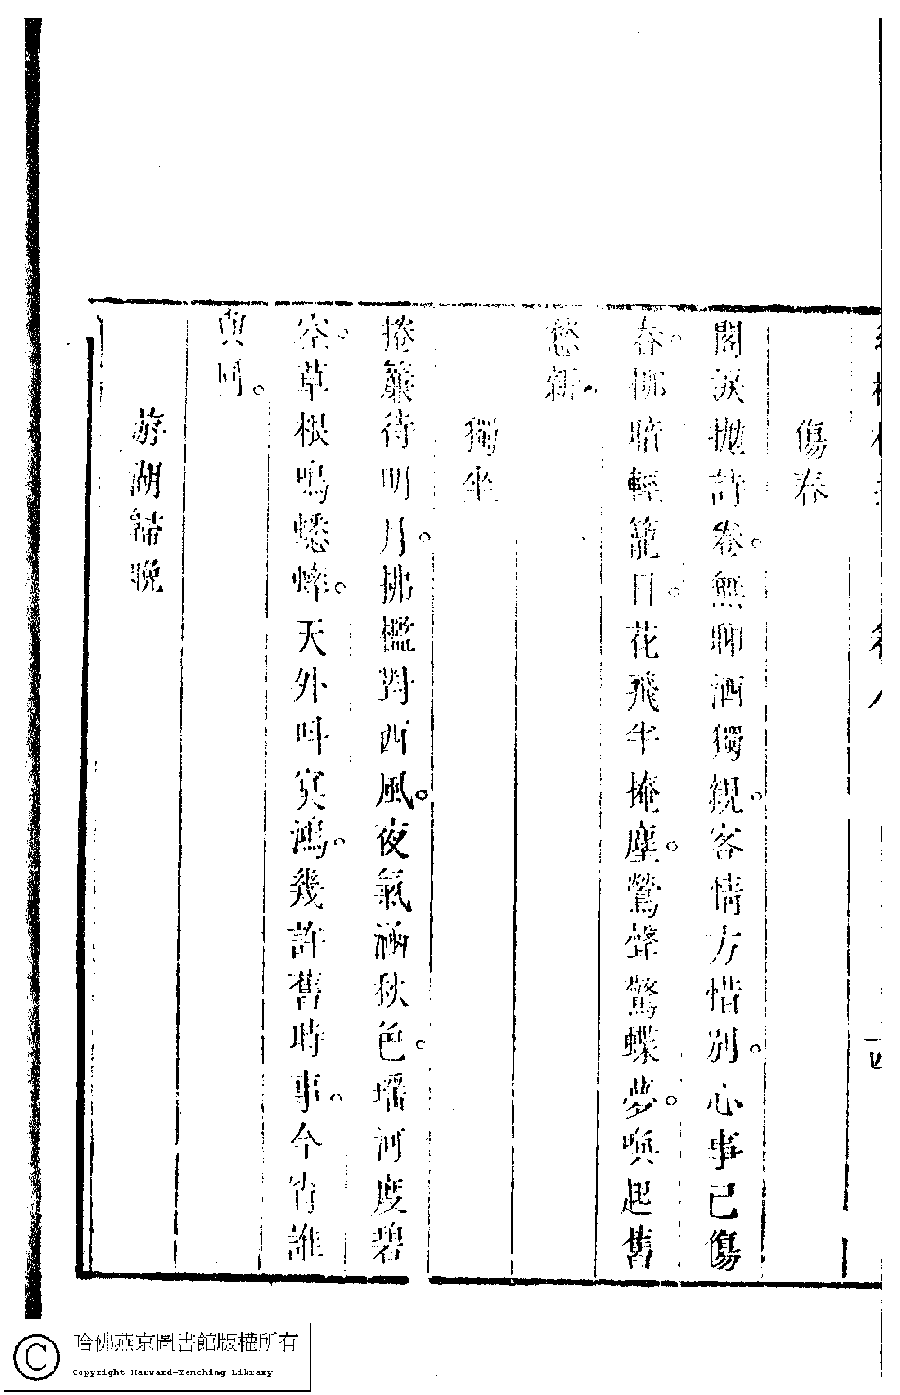 傷春
閣淚拋詩卷。無聊酒獨親。客情方惜別。心事已傷
春。柳暗輕籠日。花飛半掩塵。鶯聲驚蝶夢。喚起舊
愁新。
獨坐
捲簾待明月。拂檻對西風。夜氣涵秋色。瑤河度碧
空。草根鳴蟋蟀。天外叫冥鴻。幾許舊時事。今宵誰
與同。
游湖歸晚
哈佛燕京圖書館版權所有
Copyright Harvard-Yenching Library